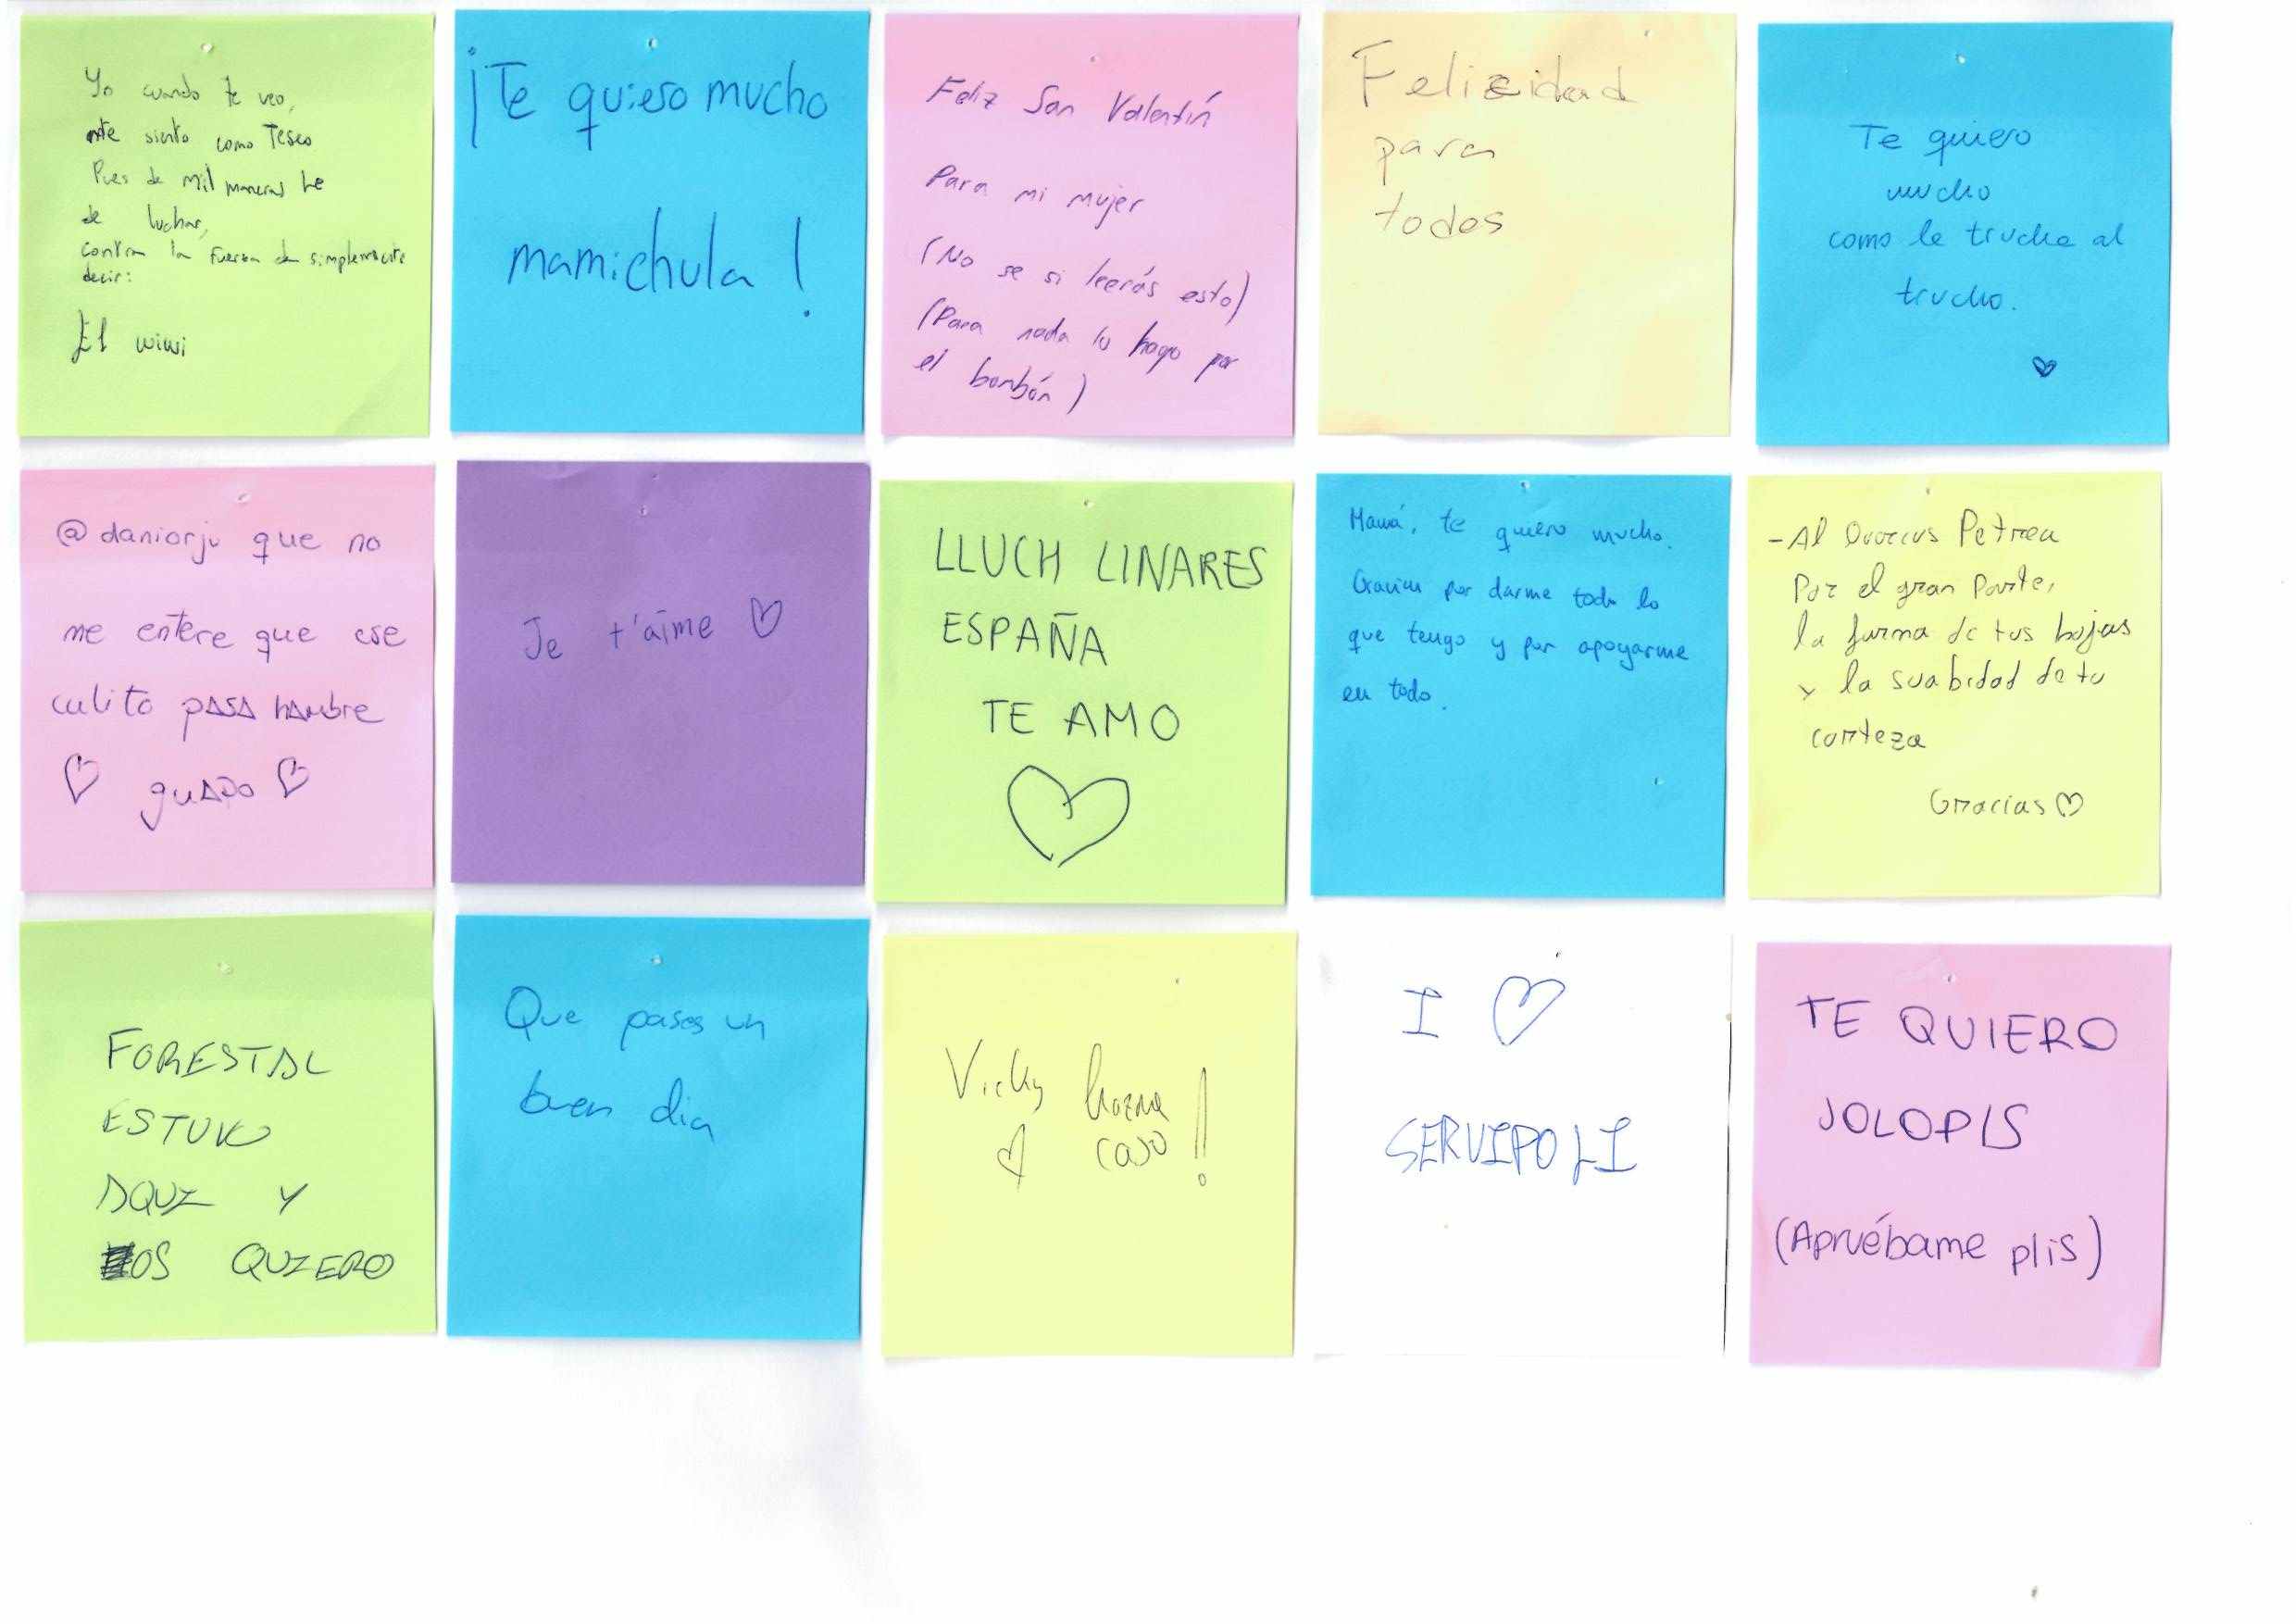 Yo cuando te veo,
me siento como Teseo
Pues de mil maneras he
de luchar,
contra la fuerza de simplemente
decir:
El wiwi
¡Te quiero mucho
mamichula!
Feliz San Valentín
Para mi mujer
(No se si leerás esto)
(Para nada lo hago por
el bombón)
Felicidad
para
todos
Te quiero
mucho
como la trucha al
trucho.
@daniorju que no
me entere que ese
culito PASA HAMBRE
guapo
Je t'aime
LLUCH LINARES
ESPAÑA
TE AMO
Mamá, te quiero mucho.
Gracias por darme todo lo
que tengo y por apoyarme
en todo.
-Al Quercus Petraea
Por el gran Porte,
la forma de tus hojas
y la suabidad de tu
corteza
Gracias
FORESTAL
ESTUVO
AQUI Y
OS QUIERO
Que pases un
buen dia
Vicky hazme
caso!!
I
SERVIPOLI
TE QUIERO
JOLOPIS
(Apruébame plis)